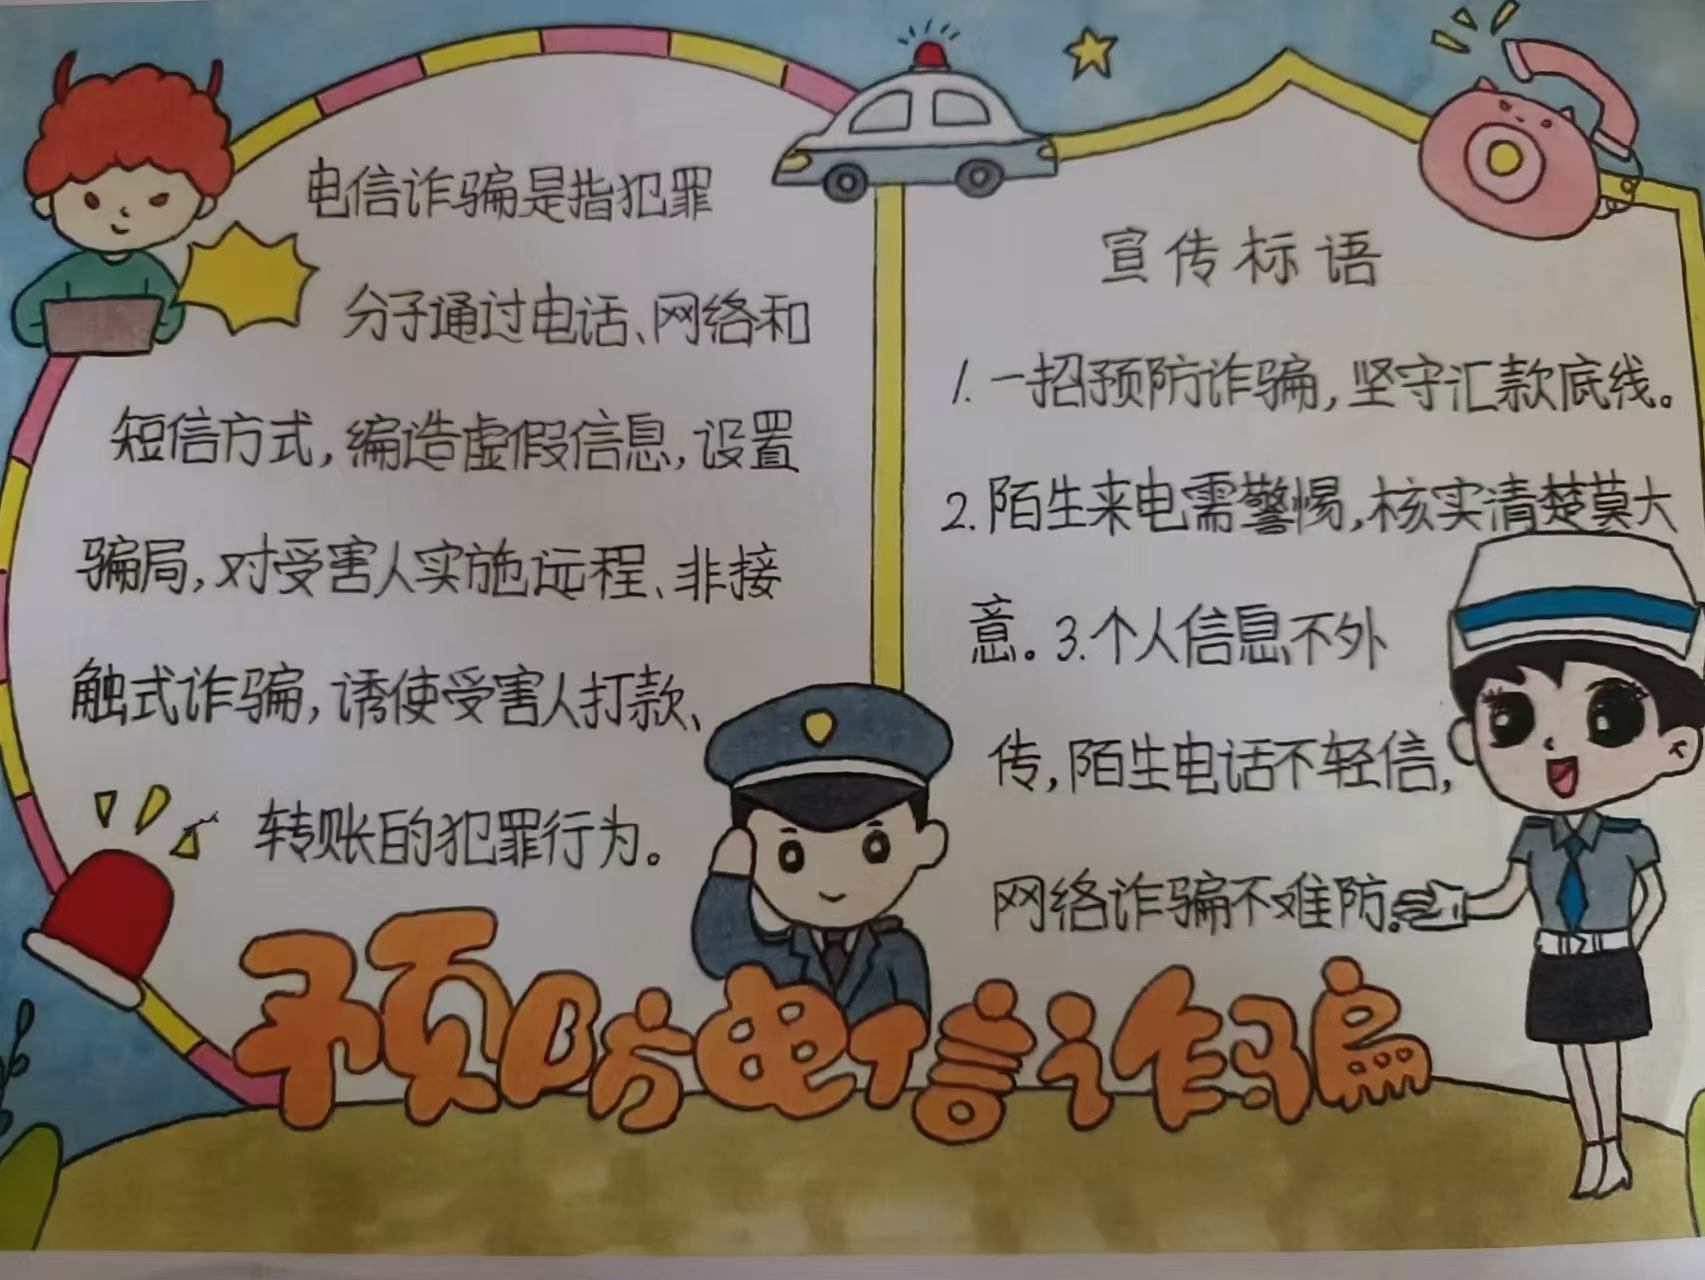 电信诈骗是指犯罪
分子通过电话、网络和
短信方式，编造虚假信息，设置
骗局，对受害人实施远程、非接
触式诈骗，诱使受害人打款、
转账的犯罪行为。
宣传标语
1.一招预防诈骗，坚守汇款底线。
2.陌生来电需警惕，核实清楚莫大
意。3.个人信息不外
传，陌生电话不轻信，
网络诈骗不难防。
预防电信诈骗